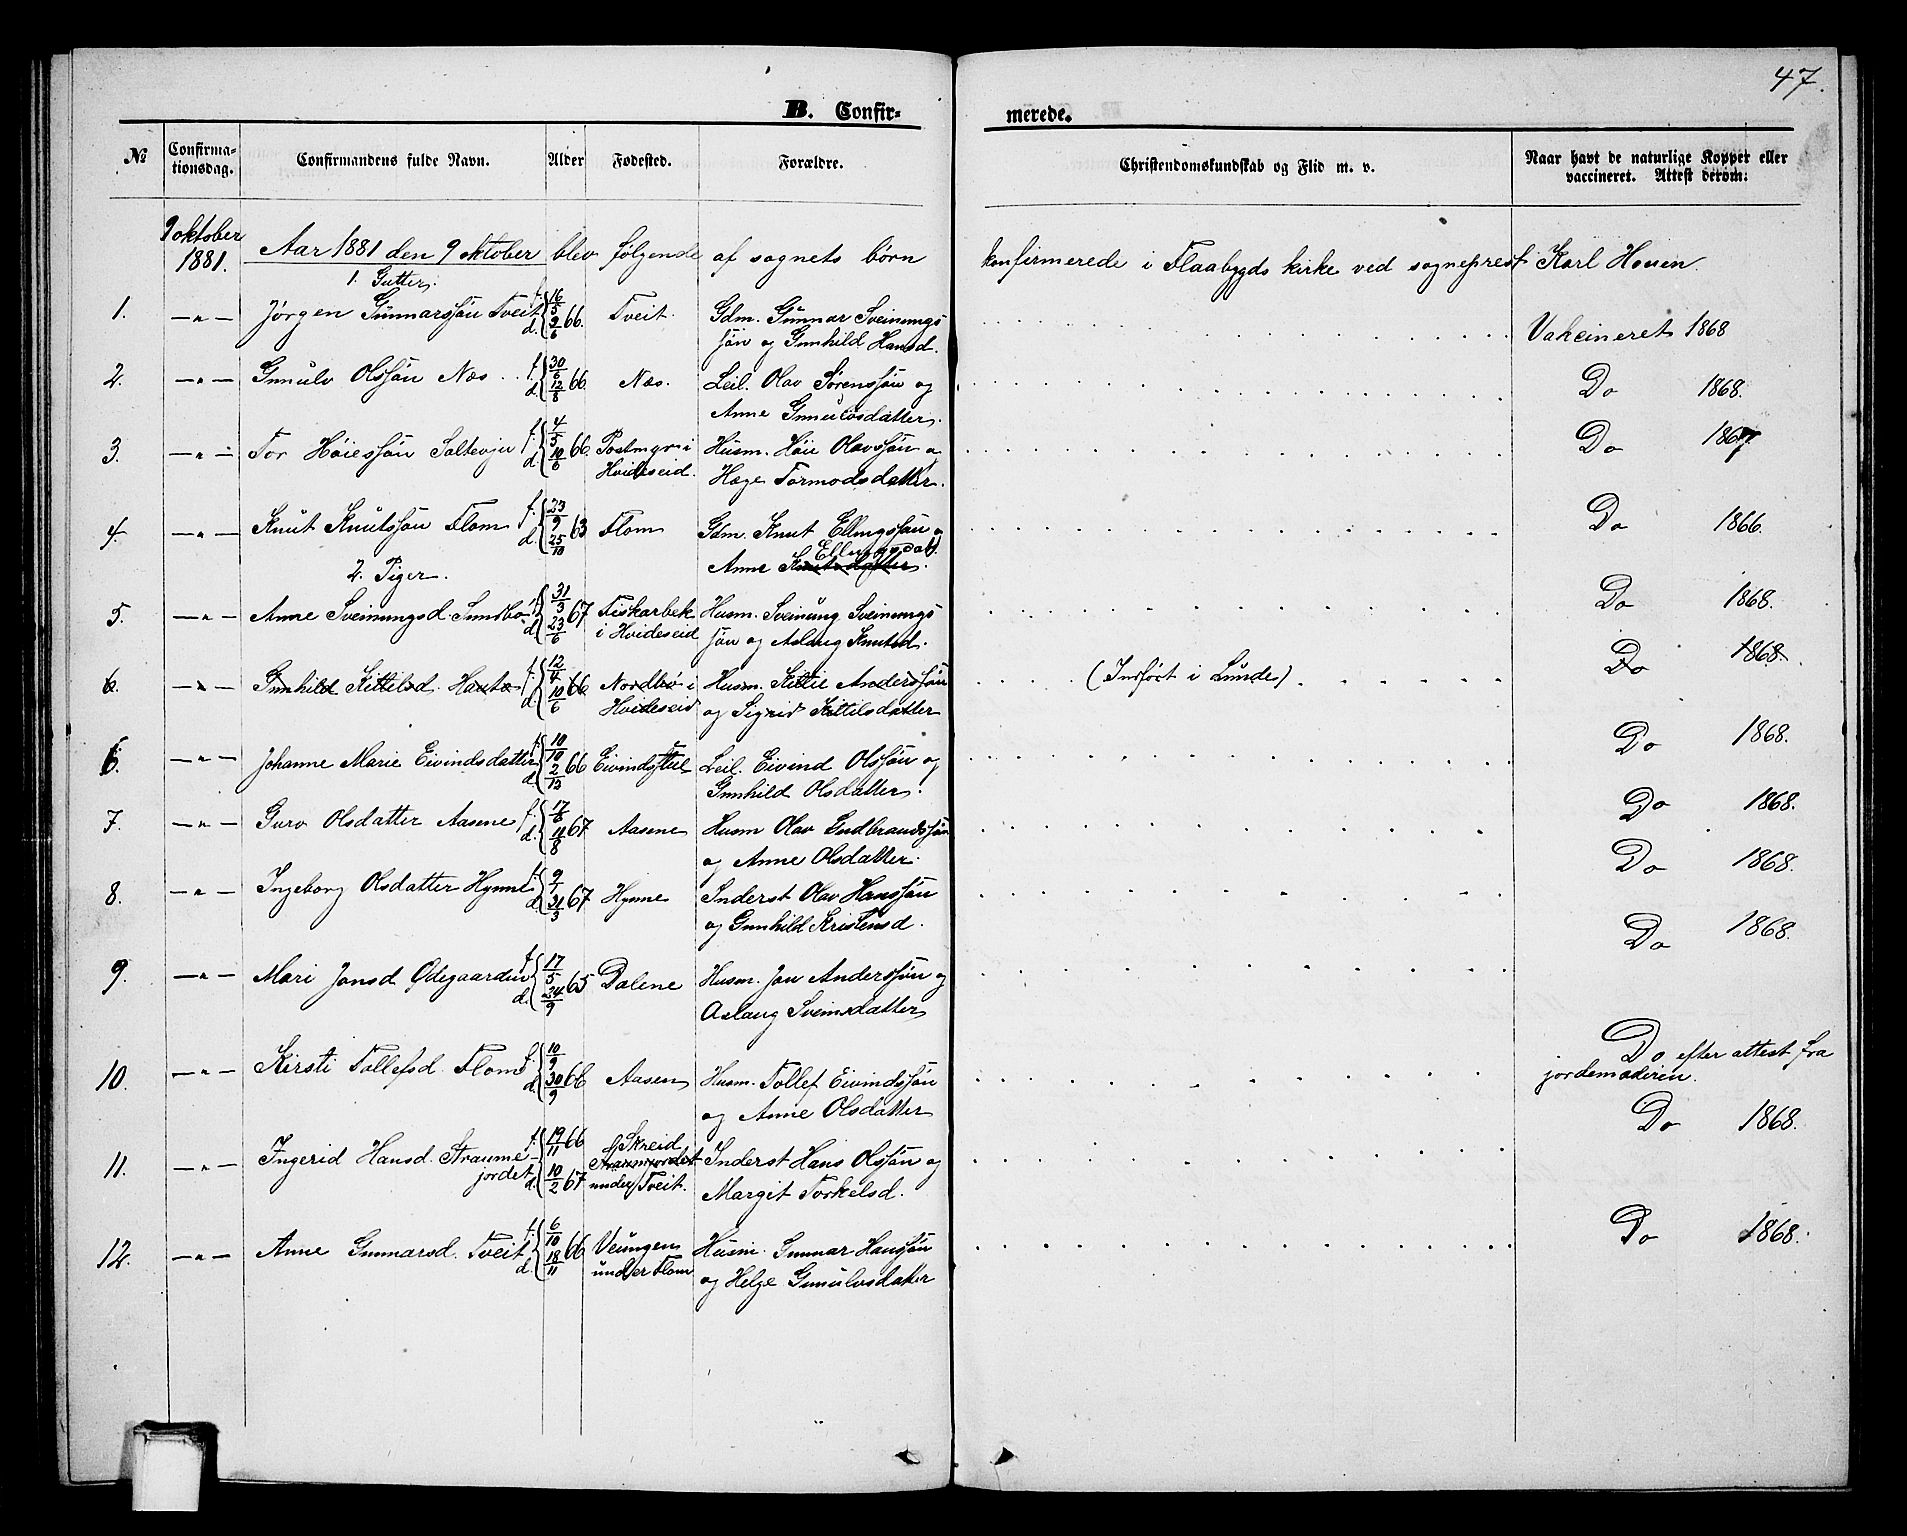 47.
B. Confir-
merede.
№
Confirma-
tionsdag.
Confirmandens fulde Navn.
Alder
Fødested.
Forældre.
Christendomskundskab og Flid m. v.
Naar havt de naturlige Kopper eller
vaccineret. Attest derom:
9 oktober
1881.
Aar 1881 den 9 oktober blev følgende af sognets børn konfirmerede i Flaabygds kirke ved sogneprest Karl Houen.
1. Gutter.
1. — " — Jørgen Gunnarssøn Tveit f. 16/5 66. Tveit. Gdm. Gunnar Sveinungs Vakcineret 1868
d. 9/6 søn og Gunhild Hansd.
2. — " — Gunulv Olssøn Næs f. 30/6 66. Næs. Leil. Olav Sørenssøn og Do 1868.
d. 12/8 Anne Gunulvsdatter.
3. — " — Tor Høiessøn f. 4/5 66. i Husm. Høie Olavssøn og Do 1867
d. 10/6 Hvideseid. Hæge Tormodsdatter.
4. — " — Knut Knutssøn Flom f. 23/9 63 Flom Gdm. Knut Ellingssøn og Do 1866.
d. 25/10 Anne Knutsdatter. Ellingsdat.
2. Piger.
5. — " — Anne Sveinungsd. Sundbø f. 31/3 67 Fiskarbek Husm. Sveinung Sveinungs Do 1868.
d. 23/6 i Hvideseid søn og Aslaug Knutsd.
6. — " — Gunhild Kittilsd. Hautæ f. 12/4 66. Nordbø i Husm. Kittil Anderssøn (Indført i Lunde) Do 1868.
d. 10/6 Hvideseid og Sigrid Kittilsdatter
6. — " — Johanne Marie Eivindsdatter f. 10/10 66 Eivindstul Leil. Eivind Olssøn og Do 1868.
d. 2/12 Gunhild Olsdatter.
7. — " — Guro Olsdatter Aasene f. 17/6 67 Aasene Husm Olav Gudbrandssøn Do 1868.
d. 11/8 og Anne Olsdatter.
8. — " — Ingeborg Olsdatter Hynne f. 9/1 67 Hynne Inderst Olav Hanssøn Do 1868.
d. 31/3 og Gunhild Kristensd.
9. — " — Mari Jonsd Ødegaarden f. 17/5 65 Dalene Husm. Jon Anderssøn og Do 1868.
d. 24/9 Aslaug Sveinsdatter
10. — " — Kirsti Tollefsd. Flom f. 10/9 66 Aasen Husm. Tollef Eivindssøn Do efter attest fra
d. 30/9 og Anne Olsdatter jordemoderen.
11. — " — Ingerid Hansd. Straume- f. 19/11 66 Skreid Inderst Hans Olssøn og Do 1868.
jordet d. 10/2 67 Straumjordet under Tveit. Margit Torkelsd.
12. — " — Anne Gunnarsd. Tveit f. 6/10 66 Veungen Husm. Gunnar Hanssøn Do 1868.
d. 18/11 under Flom og Helge Gunulvsdatter